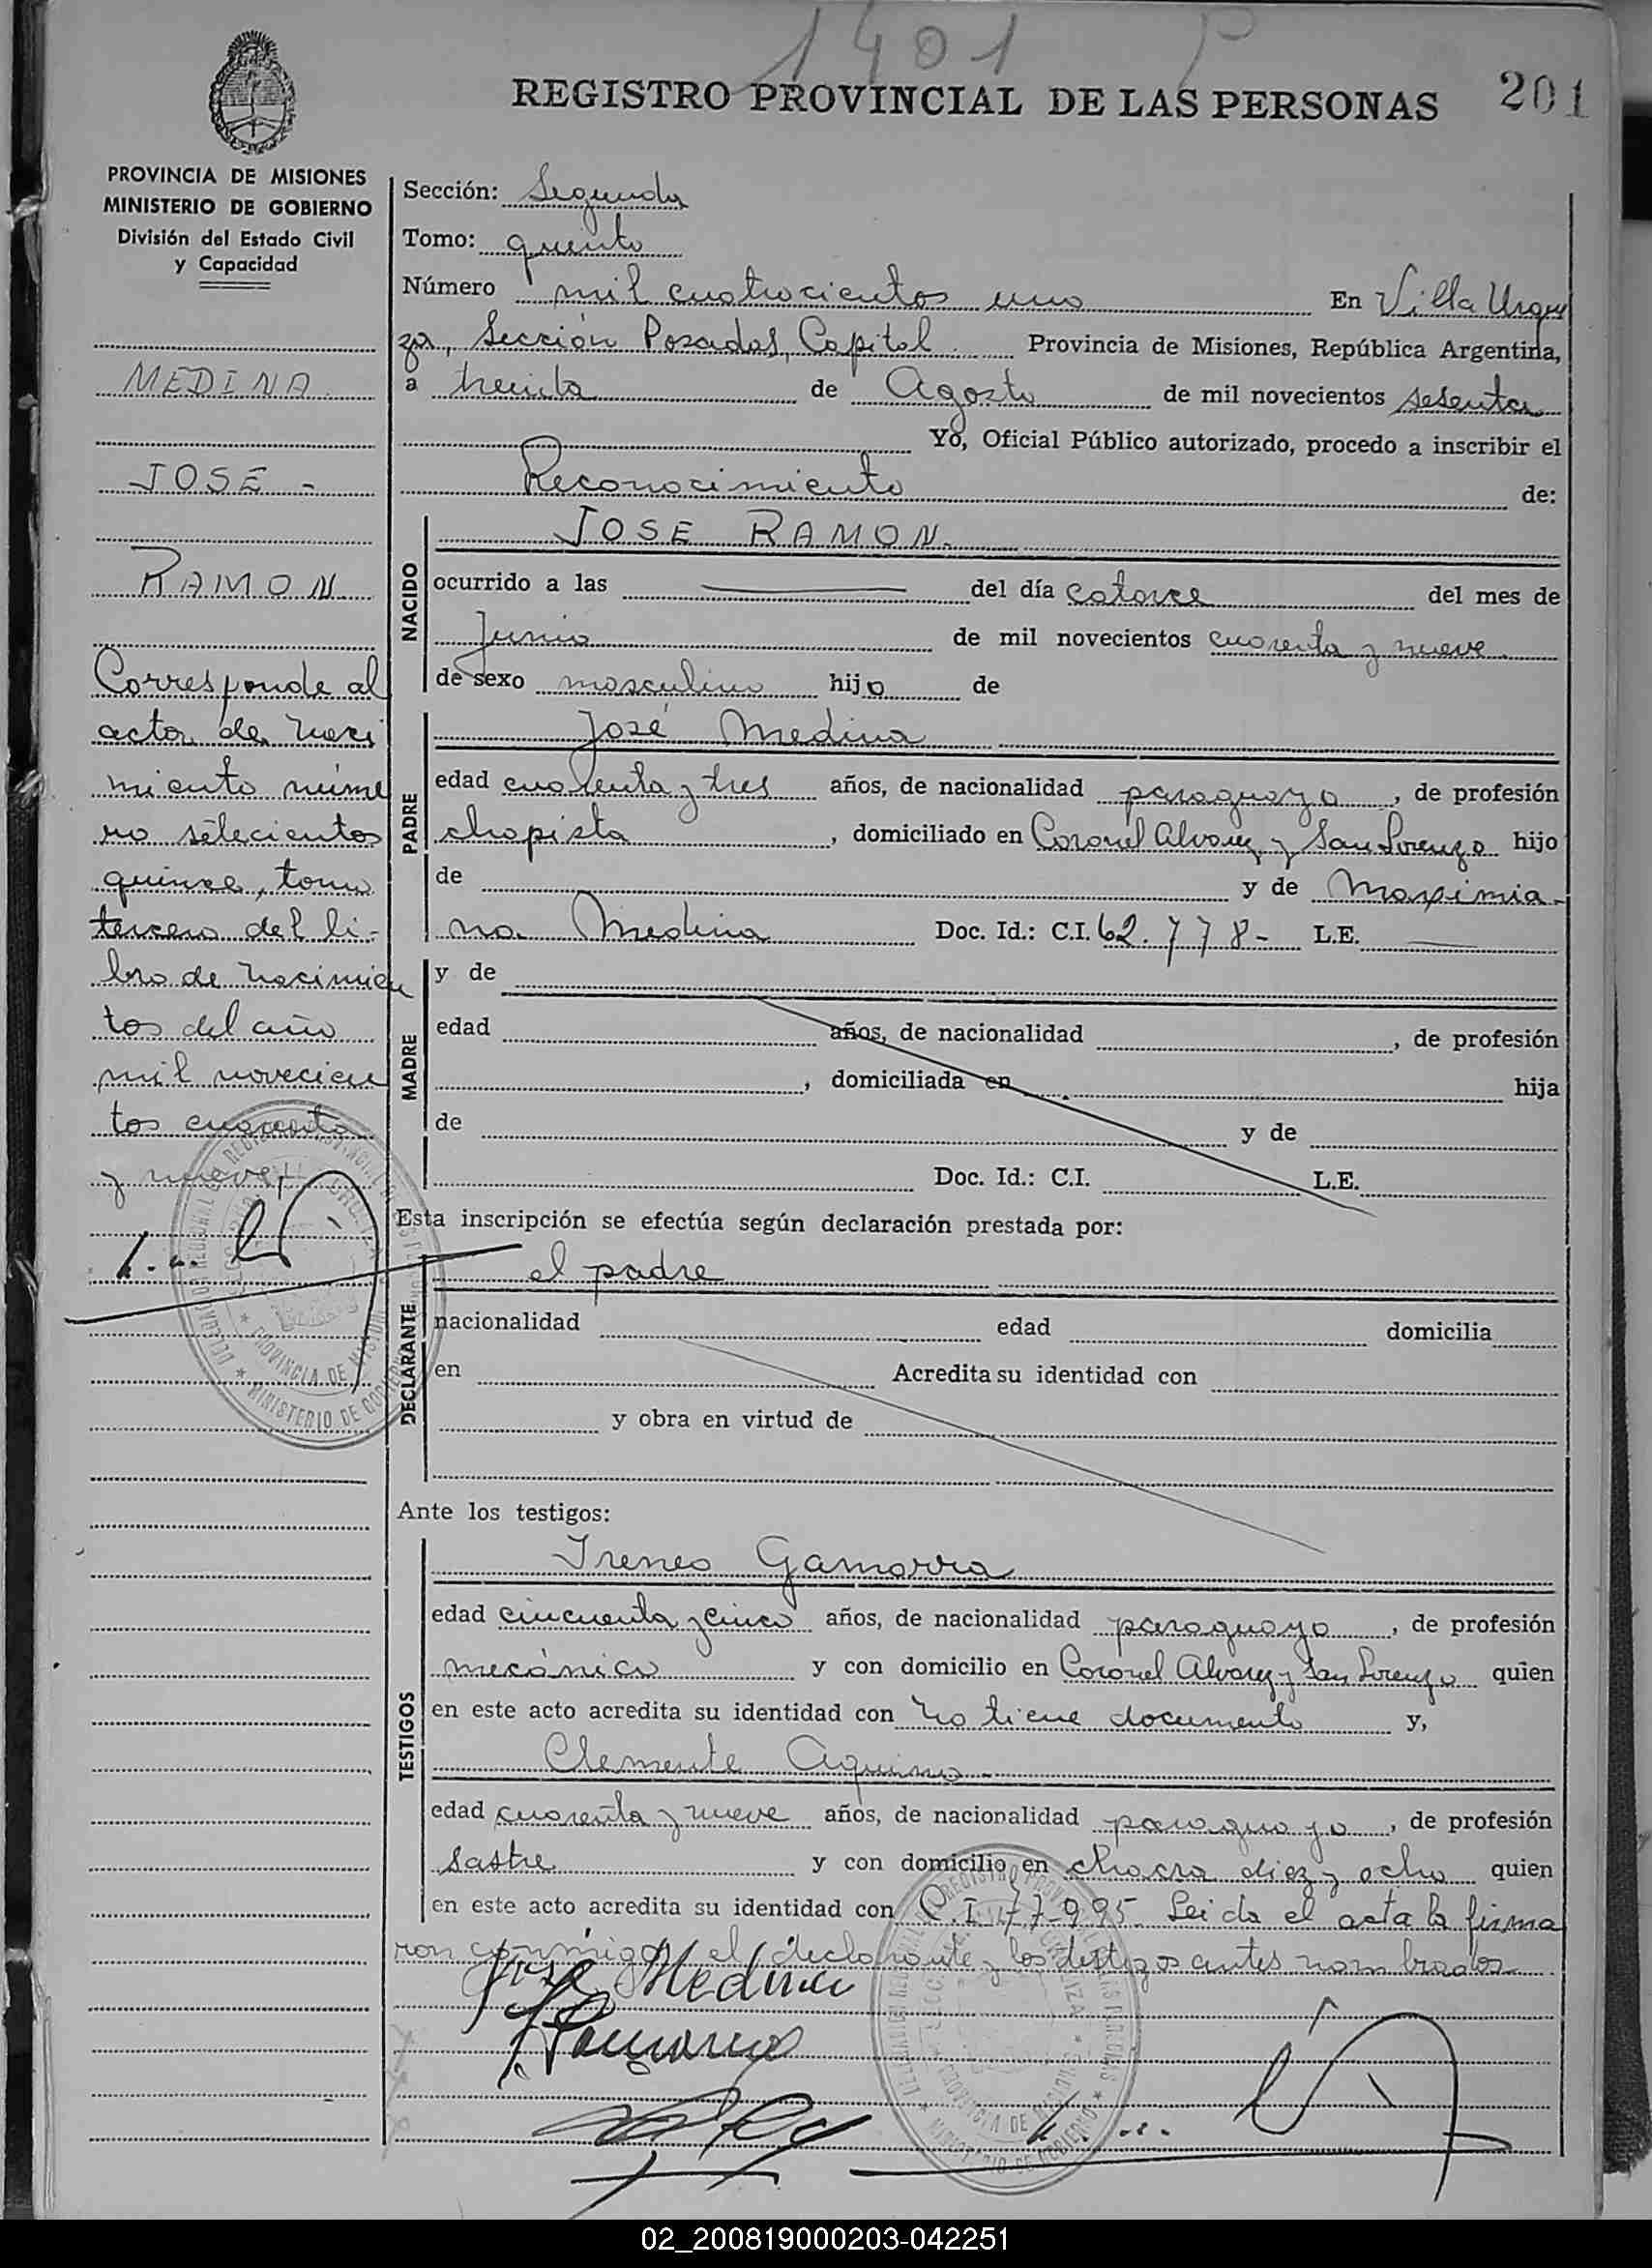 1401
REGISTRO PROVINCIAL DE LAS PERSONAS 201
PROVINCIA DE MISIONES
MINISTERIO DE GOBIERNO
División del Estado Civil
y Capacidad
MEDINA
JOSE -
RAMON
Corresponde al
acta de naci
miento núme
ro setecientos
quince, tomo
tercero del li-
bro de nacimien
tos del año
mil novecien
tos cuarenta
y nueve,
Sección: Segunda
Tomo: quinto
Número mil cuatrocientos uno En Villa Urqui
za, Sección Posadas, Capital Provincia de Misiones, República Argentina,
a treinta de Agosto de mil novecientos sesenta
Yo, Oficial Público autorizado, procedo a inscribir el
Reconocimiento de:
NACIDO
JOSE RAMON.
ocurrido a las del día catorce del mes de
Junio de mil novecientos cuarenta y nueve
de sexo masculino hijo de
PADRE
José Medina
edad cuarenta y tres años, de nacionalidad paraguaya, de profesión
chapista, domiciliado en Coronel Alvarez y San Lorenzo hijo
de y de Maximia-
na Medina Doc. Id.: C.I. 62.778- L.E.
MADRE
y de
edad años, de nacionalidad , de profesión
, domiciliada en hija
de y de
Doc. Id.: C.I. L.E.
Esta inscripción se efectúa según declaración prestada por:
DECLARANTE
el padre
nacionalidad edad domicilia
en Acredita su identidad con
y obra en virtud de
Ante los testigos:
TESTIGOS
Ireneo Gamarra
edad cincuenta y cinco años, de nacionalidad paraguayo, de profesión
mecánico y con domicilio en Coronel Alvarez y San Lorenzo quien
en este acto acredita su identidad con no tiene documento y,
Clemente Aquino -
edad cuarenta y nueve años, de nacionalidad paraguayo, de profesión
Sastre y con domicilio en chacra diez y ocho quien
en este acto acredita su identidad con C.I. 77-995. Leida el acta la firma
ron conmigo el declarante y los testigos antes nombrados
José Medina
PROVINCIA DE MISIONES
MINISTERIO DE GOBIERNO
02_200819000203-042251